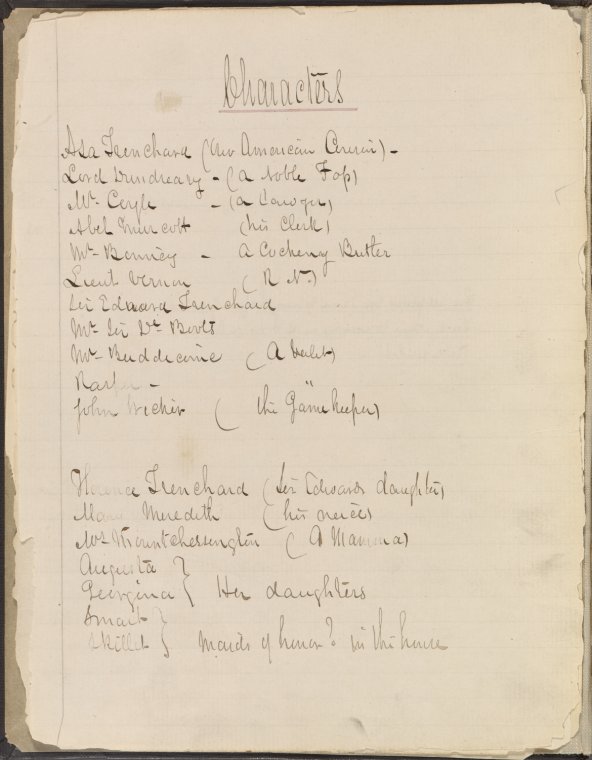 Characters
Asa Trenchard (Our American Cousin) -
Lord Dundreary - (a Noble Fop)
Mr Coyle - (a Lawyer)
Abel Murcott (his Clerk)
Mr- Benney - A Cockeny Butler
Lieut Vernon (R N.)
Sir Edward Trenchard
Mr Boots
Mr- Buddecome (A Valet)
John Wicker (the Game Keeper)
Florence Trenchard (Sir Edwards daughter)
Mary Meredith (his neice)
Mrs Mountchessington (A Mamma)
Augusta }
Georgina } Her daughters
Smart }
Skillet } Maids of honor? in the house